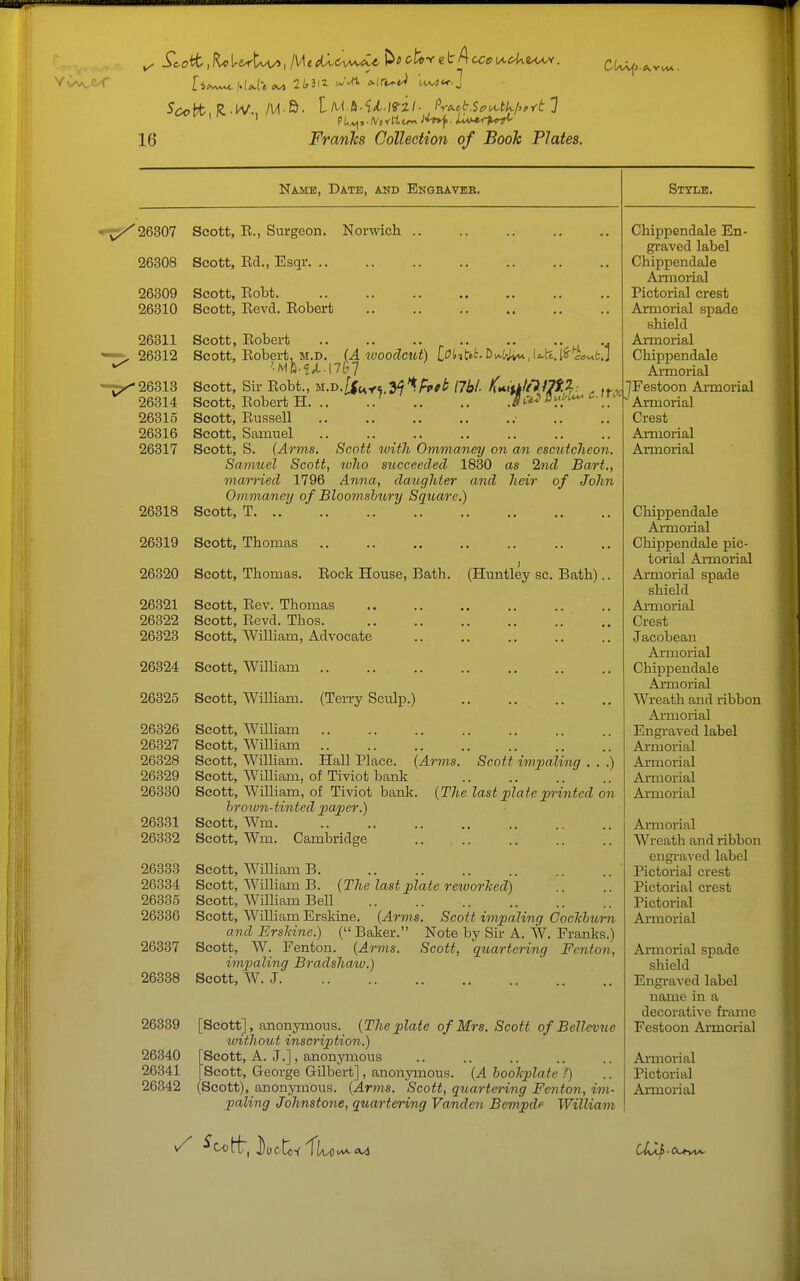 Scott, Robertus, Medicinae Doctor et Accoucheur.
Scott, R. W., M.B.
16
Franks Collection of Book Plates.
Name, Date, and Engraver.
Style.
26307 Scott, R., Surgeon. Norwich .. Chippendale Engraved label
26308 Scott, Rd., Esqr. .. Chippendale Armorial
26309 Scott, Robt. Pictorial crest
26310 Scott, Revd. Robert Armorial spade shield
26311 Scott, Robert Armorial
26312 Scott, Robert, M.D. (A woodcut) Chippendale Armorial
26313 Scott, Sir Robt., M.D. Festoon Armorial
26314 Scott, Robert H. .. Armorial
26315 Scott, Russell Crest
26316 Scott, Samuel Armorial
26317 Scott, S. (Arms. Scott with Ommaney on an escutcheon. Armorial
Samuel Scott, who succeeded 1830 as 2nd Bart.,
married 1796 Anna, daughter and heir of John
Ommaney of Bloomsbury Square.)
26318 Scott, T. .. Chippendale Armorial
26319 Scott, Thomas Chippendale pictorial Armorial
26320 Scott, Thomas. Rock House, Bath. (Huntley sc. Bath) .. Armorial spade shield
26321 Scott, Rev. Thomas Armorial
26322 Scott, Revd. Thos. Crest
26323 Scott, William, Advocate Jacobean Armorial
26324 Scott, William Chippendale Armorial
26325 Scott, William. (Terry Sculp.) Wreath and ribbon Armorial
26326 Scott, William Engraved label
26327 Scott, William Armorial
26328 Scott, William. Hall Place. (Arms. Scott impaling . . .) Armorial
26329 Scott, William, of Tiviot bank Armorial
26330 Scott, William, of Tiviot bank. (The last plate printed on Armorial
brown-tinted paper.)
26331 Scott, Wm. Armorial
26332 Scott, Wm. Cambridge Wreath and ribbon engraved label
26333 Scott, William B. Pictorial crest
26334 Scott, William B. (The last plate reworked) Pictorial crest
26335 Scott, William Bell Pictorial
26336 Scott, William Erskine. (Arms. Scott impaling Cockburn Armorial
and Erskine.) (“Baker.” Note by Sir A. W. Franks.)
26337 Scott, W. Fenton. (Arms. Scott, quartering Fenton, Armorial spade shield
impaling Bradshaw.)
26338 Scott, W. J. Engraved label name in a decorative frame
26339 [Scott], anonymous. (The plate of Mrs. Scott of Bellevue Festoon Armorial
without inscription.)
26340 [Scott, A. J.], anonymous Armorial
26341 [Scott, George Gilbert], anonymous. (A bookplate ?) .. Pictorial
26342 (Scott), anonymous. (Arms. Scott, quartering Fenton, im- Armorial
paling Johnstone, quartering Vanden Bempde William
Scott, Doctor Thomas